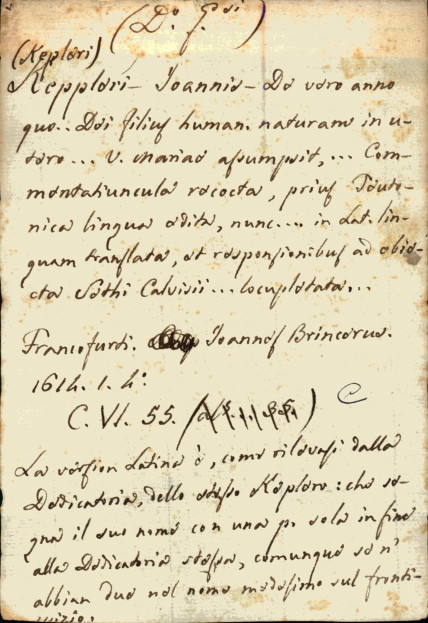 (D.º G.si)
(Kepleri)
Keppleri - Joannis - De vero anno
quo.. Dei filius human. naturam in u-
tero ... V. Mariae assumpsit, ... Com-
mentatiuncula recocta, prius Teuto-
nica lingua edita, nunc.... in Lat. lin-
guam translata, et responsionibus ad obie-
cta Sethi Calvisii ... locupletata...
Francofurti. Joannes Bringerus.
1614. 1. 4.º
C. VI. 55.
La version Latina è, come rilevasi dalla
Dedicatoria, dello stesso Keplero: che se-
gna il suo nome con una p. sola in fine
alla Dedicatoria stessa, comunque se n'
abbian due nel nome medesimo sul fronti-
spizio.